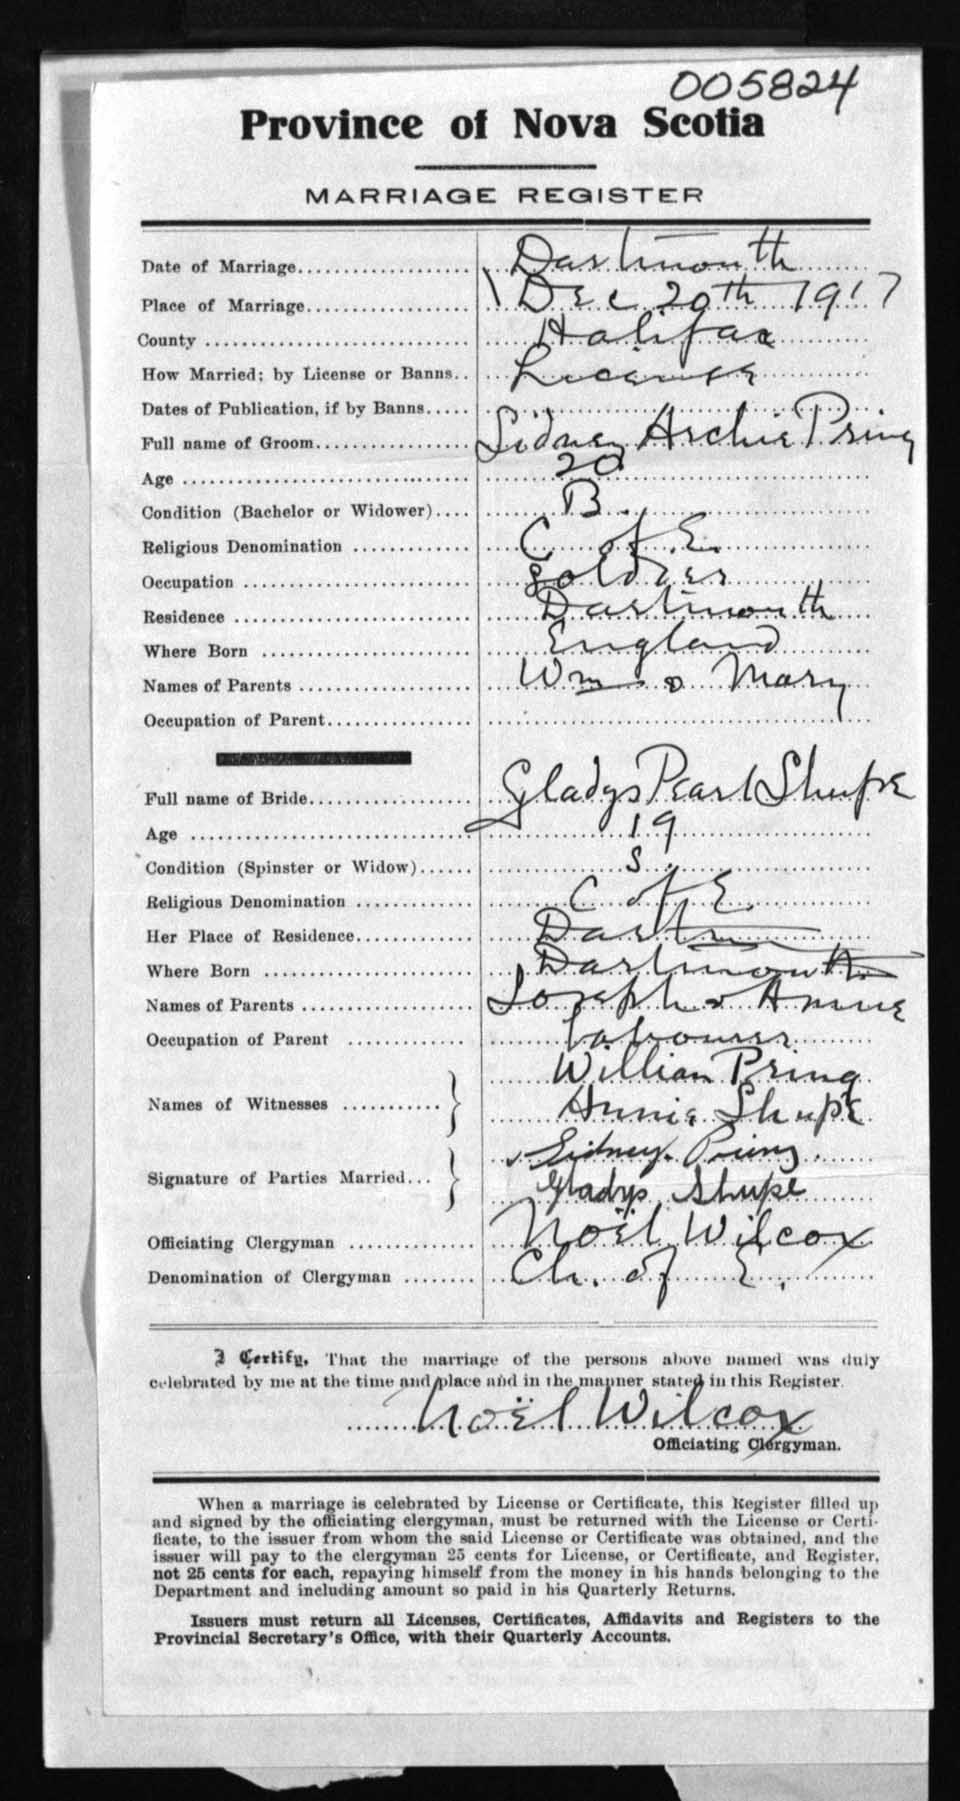 005824
Province of Nova Scotia
MARRIAGE REGISTER
Date of Marriage Dartmouth
Place of Marriage Dec 20th 1917
County Halifax
How Married; by License or Banns License
Dates of Publication, if by Banns
Full name of Groom Sidney Archie Pring
Age 20
Condition (Bachelor or Widower) B.
Religious Denomination C of E.
Occupation Soldier
Residence Dartmouth
Where Born England
Names of Parents Wm & Mary
Occupation of Parent
Full name of Bride Gladys Pearl Shupe
Age 19
Condition (Spinster or Widow) S.
Religious Denomination C of E
Her Place of Residence Dartm
Where Born Dartmouth
Names of Parents Joseph & Annie
Occupation of Parent labourer
William Pring
Names of Witnesses
Annie Shupe
Sidney. Pring.
Signature of Parties Married
Gladys Shupe
Officiating Clergyman Noël Wilcox
Denomination of Clergyman Ch. of E.
I Certify, That the marriage of the persons above named was duly
celebrated by me at the time and place and in the manner stated in this Register.
Noël Wilcox
Officiating Clergyman.
When a marriage is celebrated by License or Certificate, this Register filled up
and signed by the officiating clergyman, must be returned with the License or Certi-
ficate, to the issuer from whom the said License or Certificate was obtained, and the
issuer will pay to the clergyman 25 cents for License, or Certificate, and Register,
not 25 cents for each, repaying himself from the money in his hands belonging to the
Department and including amount so paid in his Quarterly Returns.
Issuers must return all Licenses, Certificates, Affidavits and Registers to the
Provincial Secretary's Office, with their Quarterly Accounts.